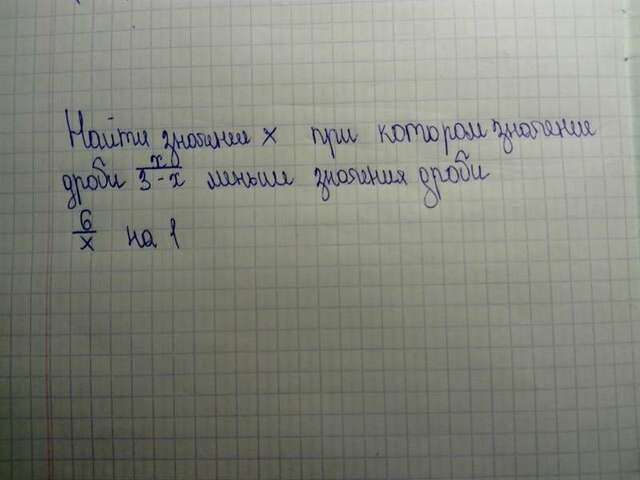 Найти значение x при котором значение
дроби x/3-x меньше значения дроби
6/x на 1